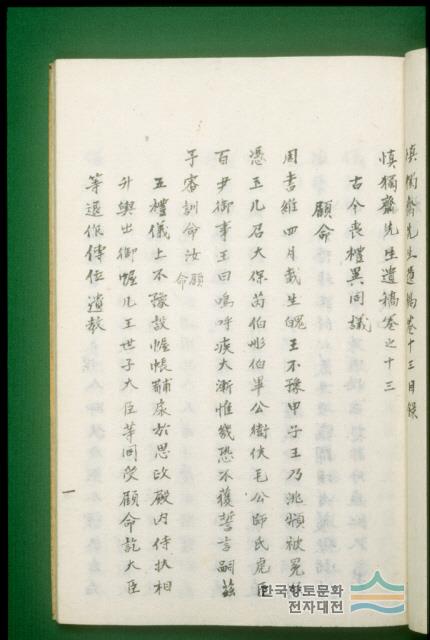 愼獨齋先生遺稿卷十三目錄
愼獨齋先生遺稿卷之十三
古今喪禮異同議
顧命
周書維四月哉生魄王不豫甲子王乃洮頮被冕
憑玉几召大保奭芮伯彤伯畢公衛侯毛公師氏虎臣
百尹御事王曰嗚呼疾大漸惟幾恐不獲誓言嗣茲
予審訓命汝 顧命
五禮儀上不豫設幄帳黼扆於思政殿內侍扶相
升輿出御幄几王世子大臣等同受顧命訖大臣
等退作傳位遺敎
一
한국향토문화
전자대전